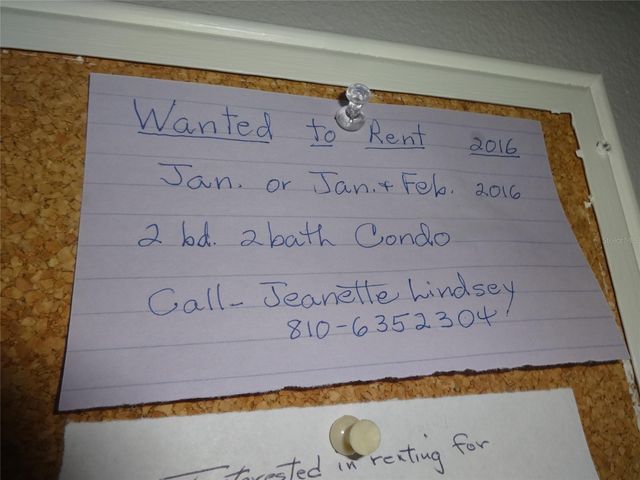 Wanted to Rent 2016
Jan. or Jan. + Feb. 2016
2 bd. 2bath Condo
Call- Jeanette Lindsey
810-6352304
in renting for